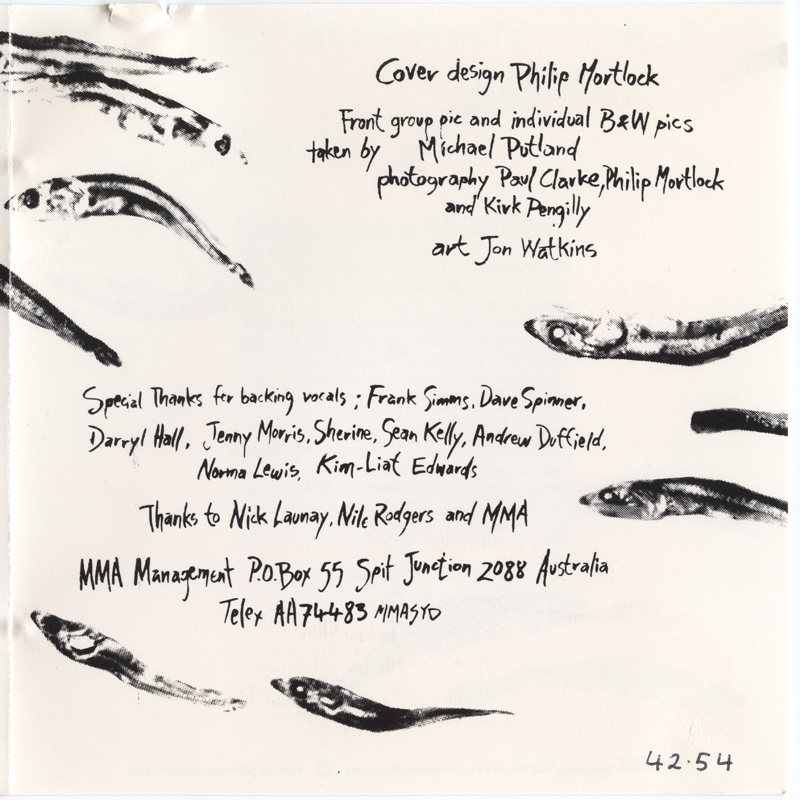 Cover design Philip Mortlock
Front group pic and individual B&W pics
taken by Michael Putland
photography Paul Clarke, Philip Mortlock
and Kirk Pengilly
art Jon Watkins
Special Thanks for backing vocals ; Frank Simms, Dave Spinner,
Darryl Hall, Jenny Morris, Sherine, Sean Kelly, Andrew Duffield,
Norma Lewis, Kim-Liat Edwards
Thanks to Nick Launay, Nile Rodgers and MMA
MMA Management P.O.Box 55 Spit Junction 2088 Australia
Telex AA74483 MMASYD
42·54